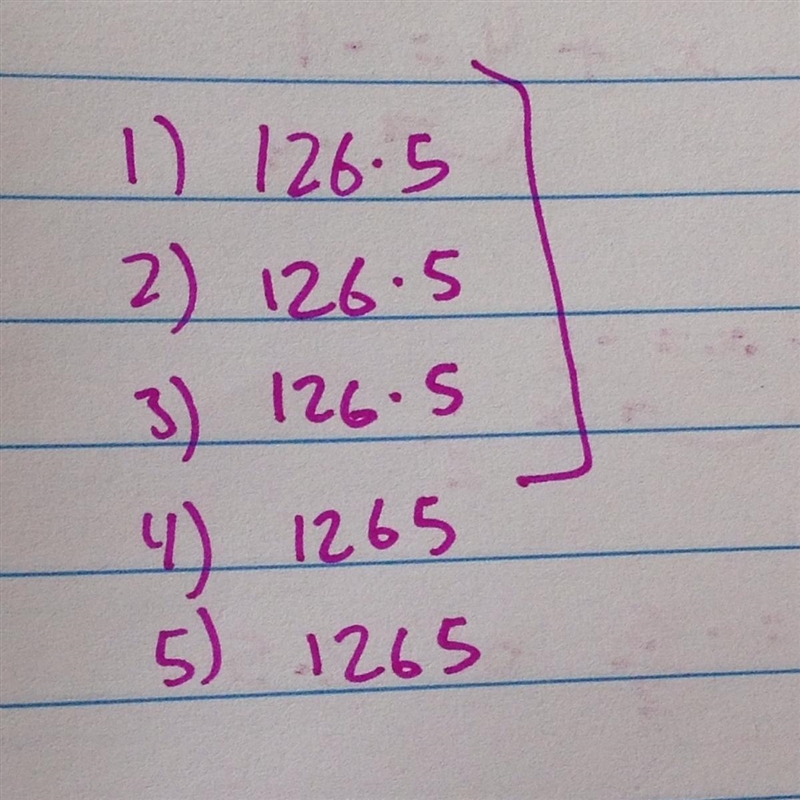 1) 126·5
2) 126·5
3) 126·5
4) 1265
5) 1265